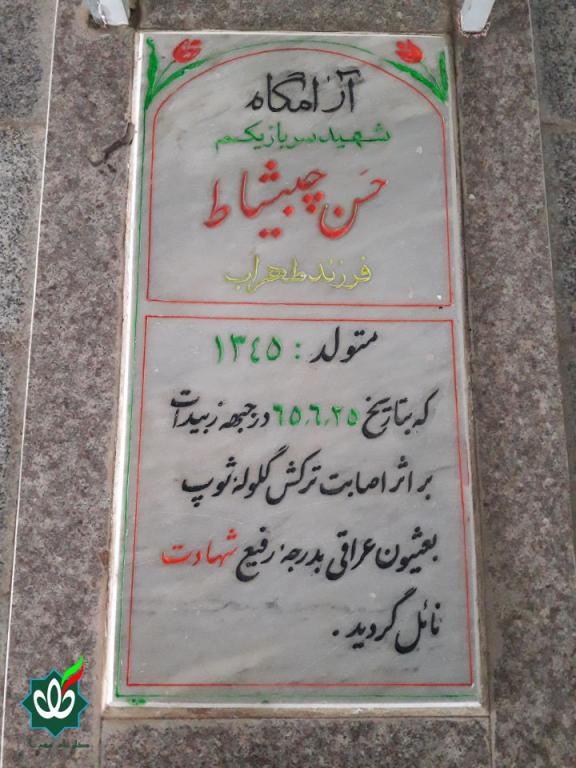 آرامگاه
شهید سرباز یکم
حسن چبیشاط
فرزند طهراب
متولد : ١٣٤٥
که بتاریخ ٦٥٫٦٫٢٥ در جبهۀ زبیدات
بر اثر اصابت ترکش گلولۀ توپ
بعثیون عراقی بدرجۀ رفیع شهادت
نائل گردید .